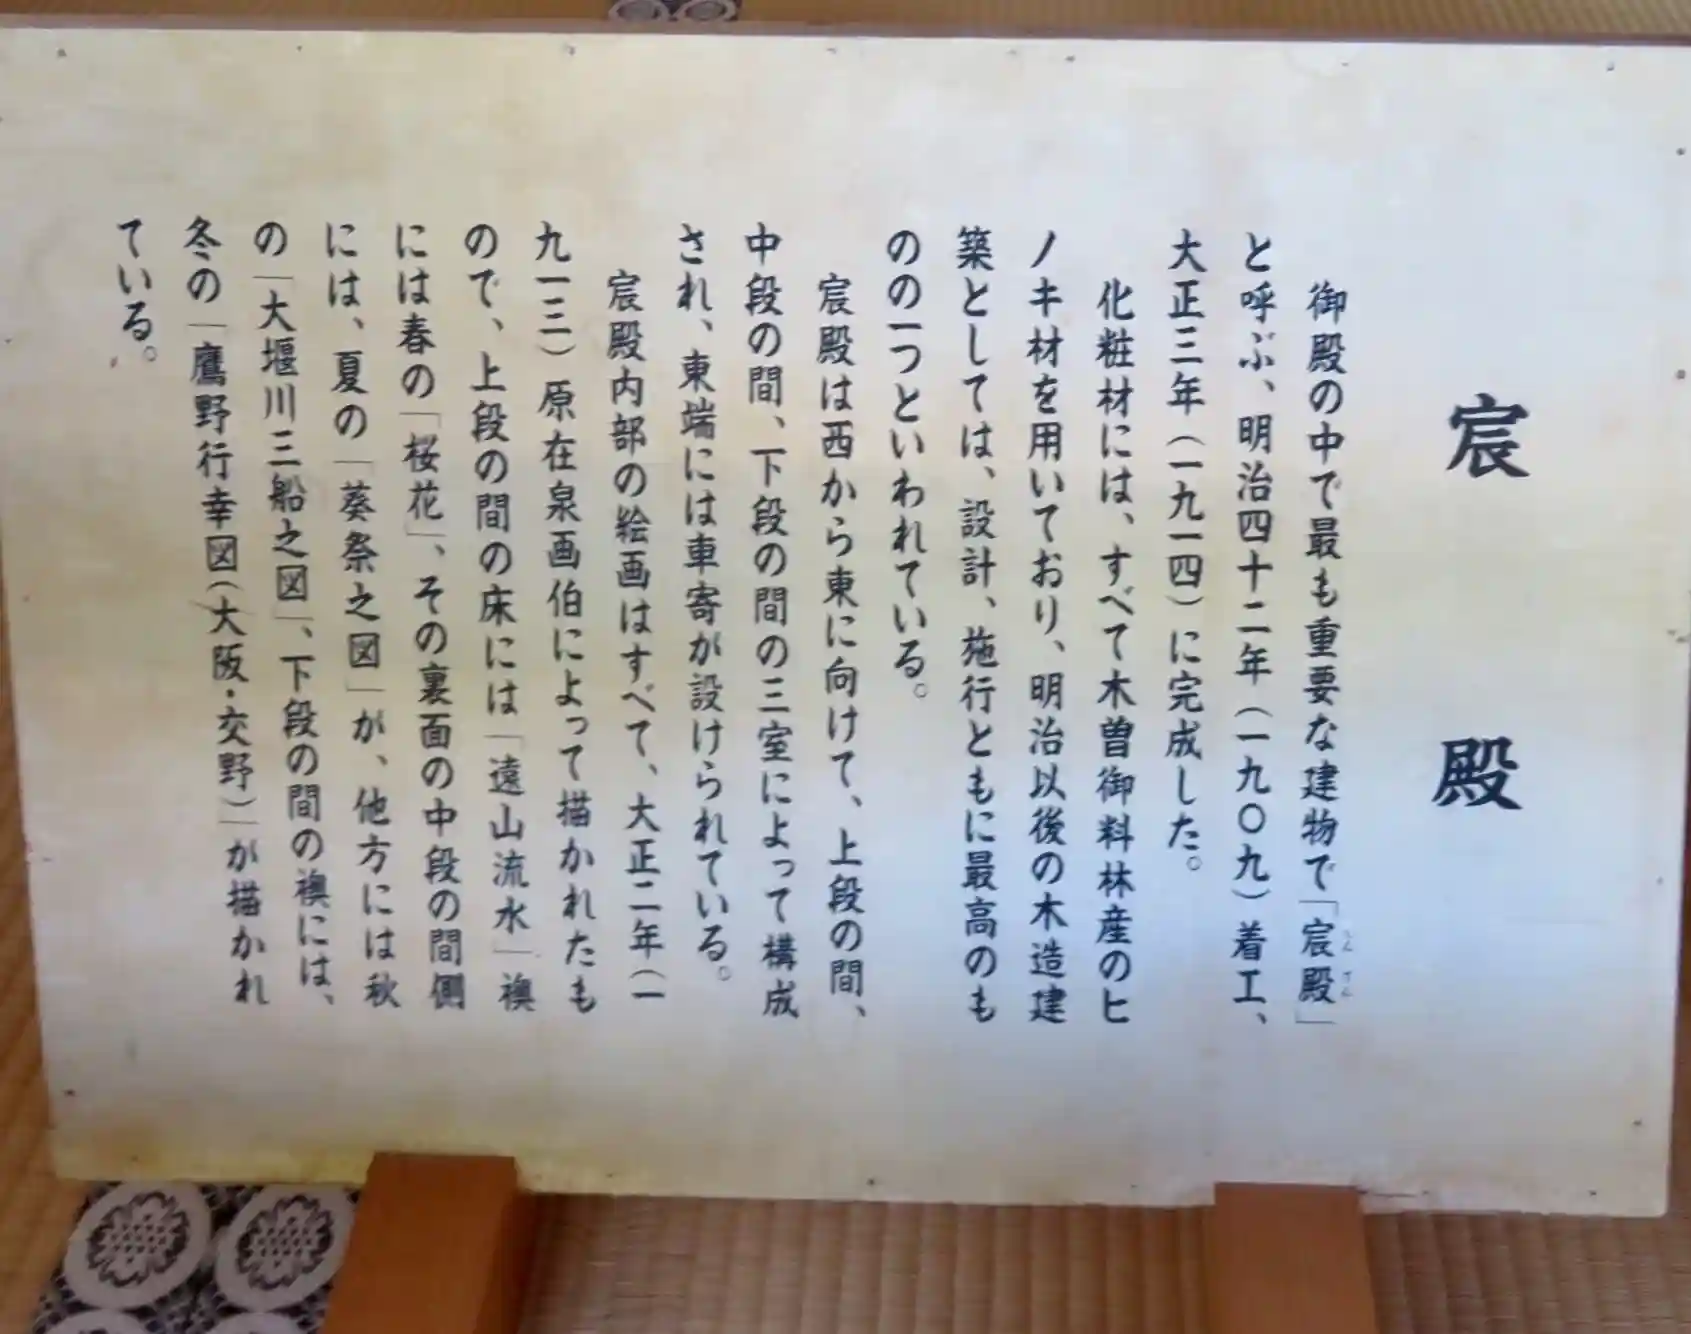 宸殿
御殿の中で最も重要な建物で「宸殿」
と呼ぶ、明治四十二年（一九〇九）着工、
大正三年（一九一四）に完成した。
化粧材には、すべて木曽御料林産のヒ
ノキ材を用いており、明治以後の木造建
築としては、設計、施行ともに最高のも
のの一つといわれている。
宸殿は西から東に向けて、上段の間、
中段の間、下段の間の三室によって構成
され、東端には車寄が設けられている。
宸殿内部の絵画はすべて、大正二年（一
九一三）原在泉画伯によって描かれたも
ので、上段の間の床には「遠山流水」襖
には春の「桜花」、その裏面の中段の間側
には、夏の「葵祭之図」が、他方には秋
の「大堰川三船之図」、下段の間の襖には、
冬の「鷹野行幸図（大阪・交野）」が描かれ
ている。